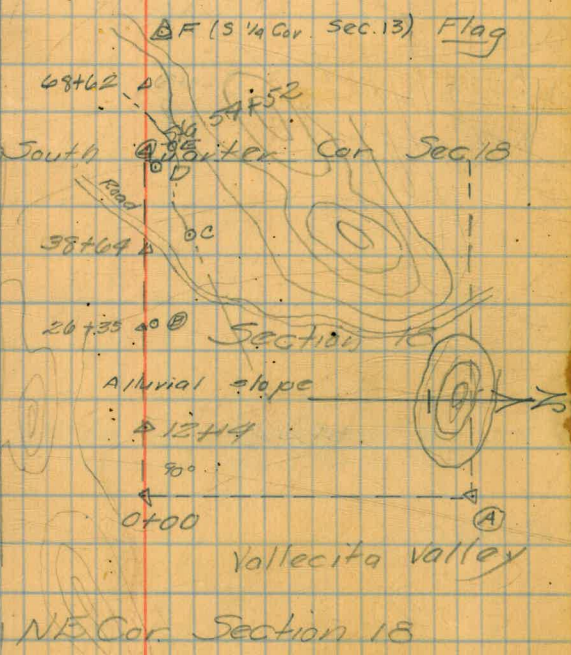 F (S 1/4 Cor. Sec. 13) Flag
68+62
54+52
E
South Quarter Cor Sec. 18
D
Road
C
38+64
26+35 B
Section 18
Alluvial slope
N
12+14
90°
0+00
A
Vallecita Valley
NE Cor. Section 18